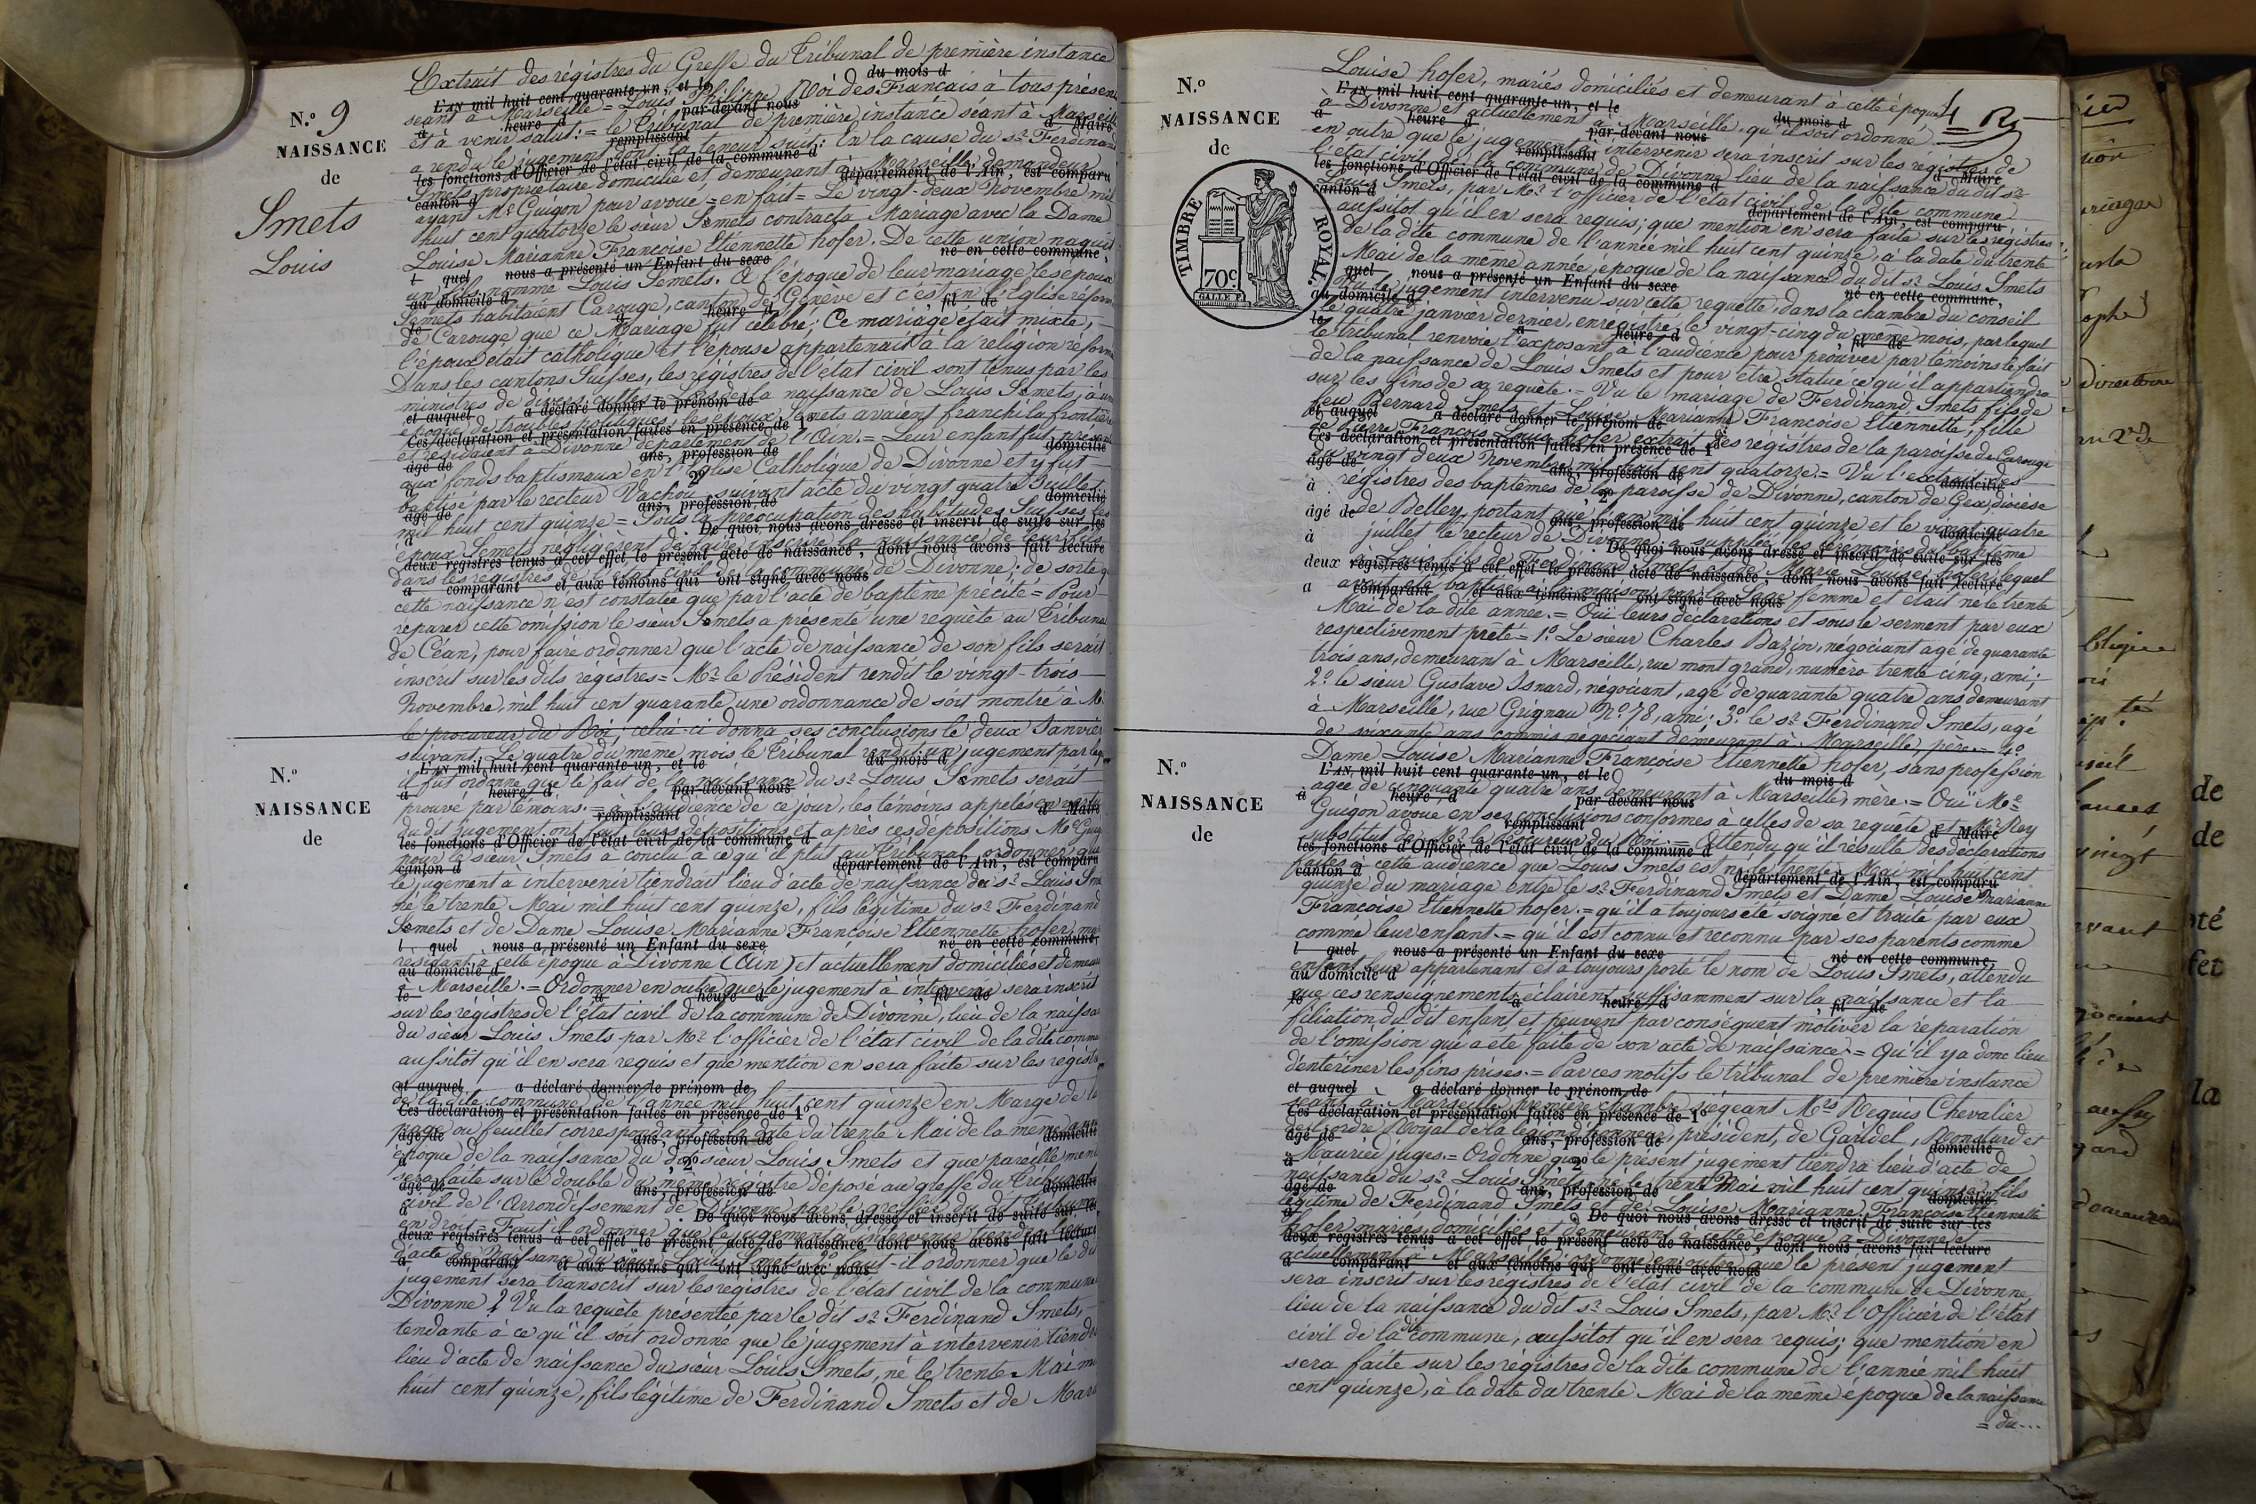 N.o 9
NAISSANCE
de
Smets
Louis
Extrait des régistres du Greffe du Tribunal de première instance
séant à Marseille = Louis Philippe Roi des Français à tous présens
et à venir salut: = le Tribunal de première instance séant à Marseille
a rendu le jugement dont la teneur suit: En la cause du sr Ferdinand
Smets, propriétaire domicilié et demeurant à Marseille; demandeur
ayant Me Guigon pour avoué = en fait = Le vingt-deux Novembre mil
huit cent quatorze le sieur Smets contracta Mariage avec la Dame
Louise Marianne Françoise Etiennette hofer. De cette union naquit
un fils nommé Louis Smets. A l'époque de leur mariage les époux
Smets habitaient Carouge, canton de Génève et c'est en l'Eglise réform
de Carouge que ce Mariage fut célébré; Ce mariage était mixte,
l'époux était catholique et l'épouse appartenait à la religion réform
Dans les cantons Suisses, les régistres de l'état civil sont tenus par les
ministres de divers cultes = Lors de la naissance de Louis Smets, à une
époque de troubles politiques, les époux Smets avaient franchi la frontière
et résidaient à Divonne département de l'Ain. = Leur enfant fut présenté
aux fonds baptismaux en l'Eglise Catholique de Divonne et y fut
baptisé par le recteur Vachou, suivant acte du vingt quatre Juillet
mil huit cent quinze = Sous la préocupation des habitudes Suisses les
époux Smets négligèrent de faire inscrire la naissance de leur fils
dans les registres de l'état civil de la commune de Divonne; de sorte q
cette naissance n'est constatée que par l'acte de baptême précité = Pour
réparer cette omission le sieur Smets a présenté une requête au Tribunal
de Céan, pour faire ordonner que l'acte de naissance de son fils serait
inscrit sur les dits régistres = Mr le Président rendit le vingt-trois
Novembre, mil huit cent quarante une ordonnance de soit montré à Mr
le procureur du Roi, celui-ci donna ses conclusions le deux Janvier
suivant. Le quatre du même mois le Tribunal rendit un jugement par leq
il fut ordonné que le fait de la naissance du sr Louis Smets serait
prouvé par témoins. = a l'audience de ce jour, les témoins appelés en vertu
du dit jugement ont fait leurs dépositions et après ces dépositions Me Guig
pour le sieur Smets a conclu à ce qu'il plut au Tribunal ordonner que
le jugement à intervenir tiendrait lieu d'acte de naissance du sr Louis Sm
né le trente Mai mil huit cent quinze, fils légitime du sr Ferdinand
Smets et de Dame Louise Marianne Françoise Etiennette hofer, ma
résidant à cette époque à Divonne (Ain) et actuellement domiciliés et demeura
à Marseille. = Ordonner en outre que le jugement à intervenir sera inscrit
sur les régistres de l'état civil de la commune de Divonne, lieu de la naissan
du sieur Louis Smets par Mr l'officier de l'état civil de la dite comm
aussitôt qu'il en sera requis et que mention en sera faite sur les régistr
de la dite commune de l'année mil huit cent quinze en Marge de la
page ou feuillet correspondant à la date du trente Mai de la même ann
époque de la naissance du dit sieur Louis Smets et que pareille ment
sera faite sur le double du même registre déposé au greffe du Tribunal
civil de l'Arrondissement de Divonne par le greffier du dit Tribunal
en droit = Faut-il ordonner que le jugement à intervenir tiendra lieu
d'acte de Naissance du sieur Louis Smets? faut-il ordonner que le dit
jugement sera transcrit sur les régistres de l'état civil de la commune
Divonne? Vu la requête présentée par le dit sr Ferdinand Smets,
tendante à ce qu'il soit ordonné que le jugement à intervenir tiendra
lieu d'acte de naissance du sieur Louis Smets, né le trente Mai m
huit cent quinze, fils légitime de Ferdinand Smets et de Mari
L'AN mil huit cent quarante-un, et le
du mois d
heure d
par-devant nous
d Maire
remplissant
les fonctions d'Officier de l'état civil de la commune d
canton d
département de l'Ain, est comparu
l quel nous a présenté un Enfant du sexe
né en cette commune,
au domicile d
le à heure d , fil de
et auquel a déclaré donner le prénom de
Ces déclaration et présentation faites en présence de 1º
âgé de ans, profession de domicilié
à , 2º
âgé de ans, profession de domicilié
à . De quoi nous avons dressé et inscrit de suite sur les
deux registres tenus à cet effet le présent acte de naissance, dont nous avons fait lecture
a comparant et aux témoins qui ont signé avec nous
N.o
NAISSANCE
de
N.o
NAISSANCE
de
TIMBRE ROYAL.
70c.
4 R
Louise hofer, mariés domiciliés et demeurant à cette époque
à Divonne et actuellement à Marseille, qu'il soit ordonné
en outre que le jugement à intervenir sera inscrit sur les registres de
l'état civil de la commune de Divonne lieu de la naissance du dit sr
Louis Smets, par Mr l'officier de l'état civil de la dite commune
aussitôt qu'il en sera requis; que mention en sera faite sur les régistres
de la dite commune de l'année mil huit cent quinze, à la date du trente
Mai de la même année, époque de la naissance du dit sr Louis Smets
Vu le jugement intervenu sur cette requête, dans la chambre du conseil
le quatre janvier dernier, enrégistré le vingt-cinq du même mois, par lequel
le tribunal renvoie l'exposant à l'audience pour prouver par témoins le fait
de la naissance de Louis Smets et pour être statué ce qu'il appartiendra
sur les fins de sa requête. = Vu le mariage de Ferdinand Smets fils de
feu Bernard Smets et Louise Marianne Françoise Etiennette, fille
de Pierre François Louis hofer extrait des registres de la paroisse de Carouge
du vingt deux Novembre mil huit cent quatorze. = Vu l'extrait des
régistres des baptêmes de la paroisse de Divonne, canton de Gex, diocèse
de Belley, portant que l'an mil huit cent quinze et le vingt-quatre
juillet le recteur de Divonne a suppléé les cérémonies du baptême
à Louis fils de Ferdinand Smets et de Marie Louise hofer lequel
avait été baptisé à la maison par la Sage femme et était né le trente
Mai de la dite année. = Oui leurs déclarations et sous le serment par eux
respectivement prêté = 1º Le sieur Charles Bazin, négociant agé de quarante
trois ans, demeurant à Marseille, rue mont grand, numéro trente cinq, ami;
2º le sieur Gustave Isnard, négociant, agé de quarante quatre ans demeurant
à Marseille, rue Grignan Nº 78, ami; 3º le sr Ferdinand Smets, agé
de soixante ans commis négociant demeurant à Marseille, père = 4º
Dame Louise Marianne Françoise Etiennette hofer, sans profession
agée de cinquante quatre ans demeurant à Marseille, mère. = Ouï Me
Guigon avoué en ses conclusions conformes à celles de sa requête et Mr Rey
substitut de Mr le Procureur du Roi. = Attendu qu'il résulte des déclarations
faites à cette audience que Louis Smets est né le trente Mai mil huit cent
quinze du mariage entre le sr Ferdinand Smets et Dame Louise Marianne
Françoise Etiennette hofer. = qu'il a toujours été soigné et traité par eux
comme leur enfant. = qu'il est connu et reconnu par ses parents comme
enfant leur appartenant et a toujours porté le nom de Louis Smets, attendu
que ces renseignements éclairent suffisamment sur la naissance et la
filiation du dit enfant et peuvent par conséquent motiver la réparation
de l'omission qui a été faite de son acte de naissance = Qu'il y a donc lieu
d'entériner les fins prises. = Par ces motifs le tribunal de première instance
séant à Marseille, première chambre, siégeant Mrs Reguis Chevalier
de l'ordre Royal de la légion d'honneur, président, de Gardel, et
Mauriei juges. = Ordonne que le présent jugement tiendra lieu d'acte de
naissance du sr Louis Smets né le trente Mai mil huit cent quinze, fils
légitime de Ferdinand Smets et de Louise Marianne Françoise Etiennette
hofer mariés domiciliés et demeurant à cette époque à Divonne et
actuellement à Marseille; ordonne en outre que le présent jugement
sera inscrit sur les régistres de l'état civil de la commune de Divonne,
lieu de la naissance du dit sr Louis Smets, par Mr l'Officier de l'état
civil de la dte commune, aussitôt qu'il en sera requis; que mention en
sera faite sur les régistres de la dite commune de l'année mil huit
cent quinze, à la date du trente Mai de la même époque de la naissance
= du...
L'AN mil huit cent quarante-un, et le
du mois d
heure d
par-devant nous
d Maire
remplissant
les fonctions d'Officier de l'état civil de la commune d
canton d
département de l'Ain, est comparu
l quel nous a présenté un Enfant du sexe
né en cette commune,
au domicile d
le à heure d , fil de
et auquel a déclaré donner le prénom de
Ces déclaration et présentation faites en présence de 1º
âgé de ans, profession de domicilié
à , 2º
âgé de ans, profession de domicilié
à . De quoi nous avons dressé et inscrit de suite sur les
deux registres tenus à cet effet le présent acte de naissance, dont nous avons fait lecture
a comparant et aux témoins qui ont signé avec nous
N.o
NAISSANCE
de